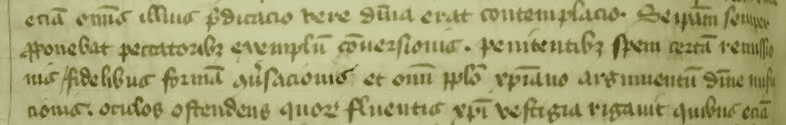 eciā om̄is illius p̄dicacio vere diu̅a erat contemplacio. Se ip̄am semper
ꝓponebat peccatoribꝫ exemplū cōuersionis. penitentibꝫ spem certā remissio
nis / fidelibus formā ꝯuersacionis et omni pplo xp̄iano argumentū diuine
cionis. oculos ostendens quoꝝ fluentis xp̄i vestigia rigauit quibus eciā